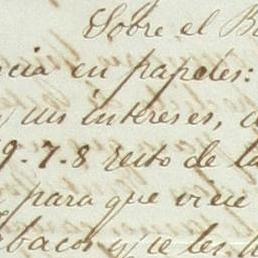 Sobre el B
ncia en papeles:
y sus intereses, d
9.7.8 resto de la
para que viese
abacos y se les